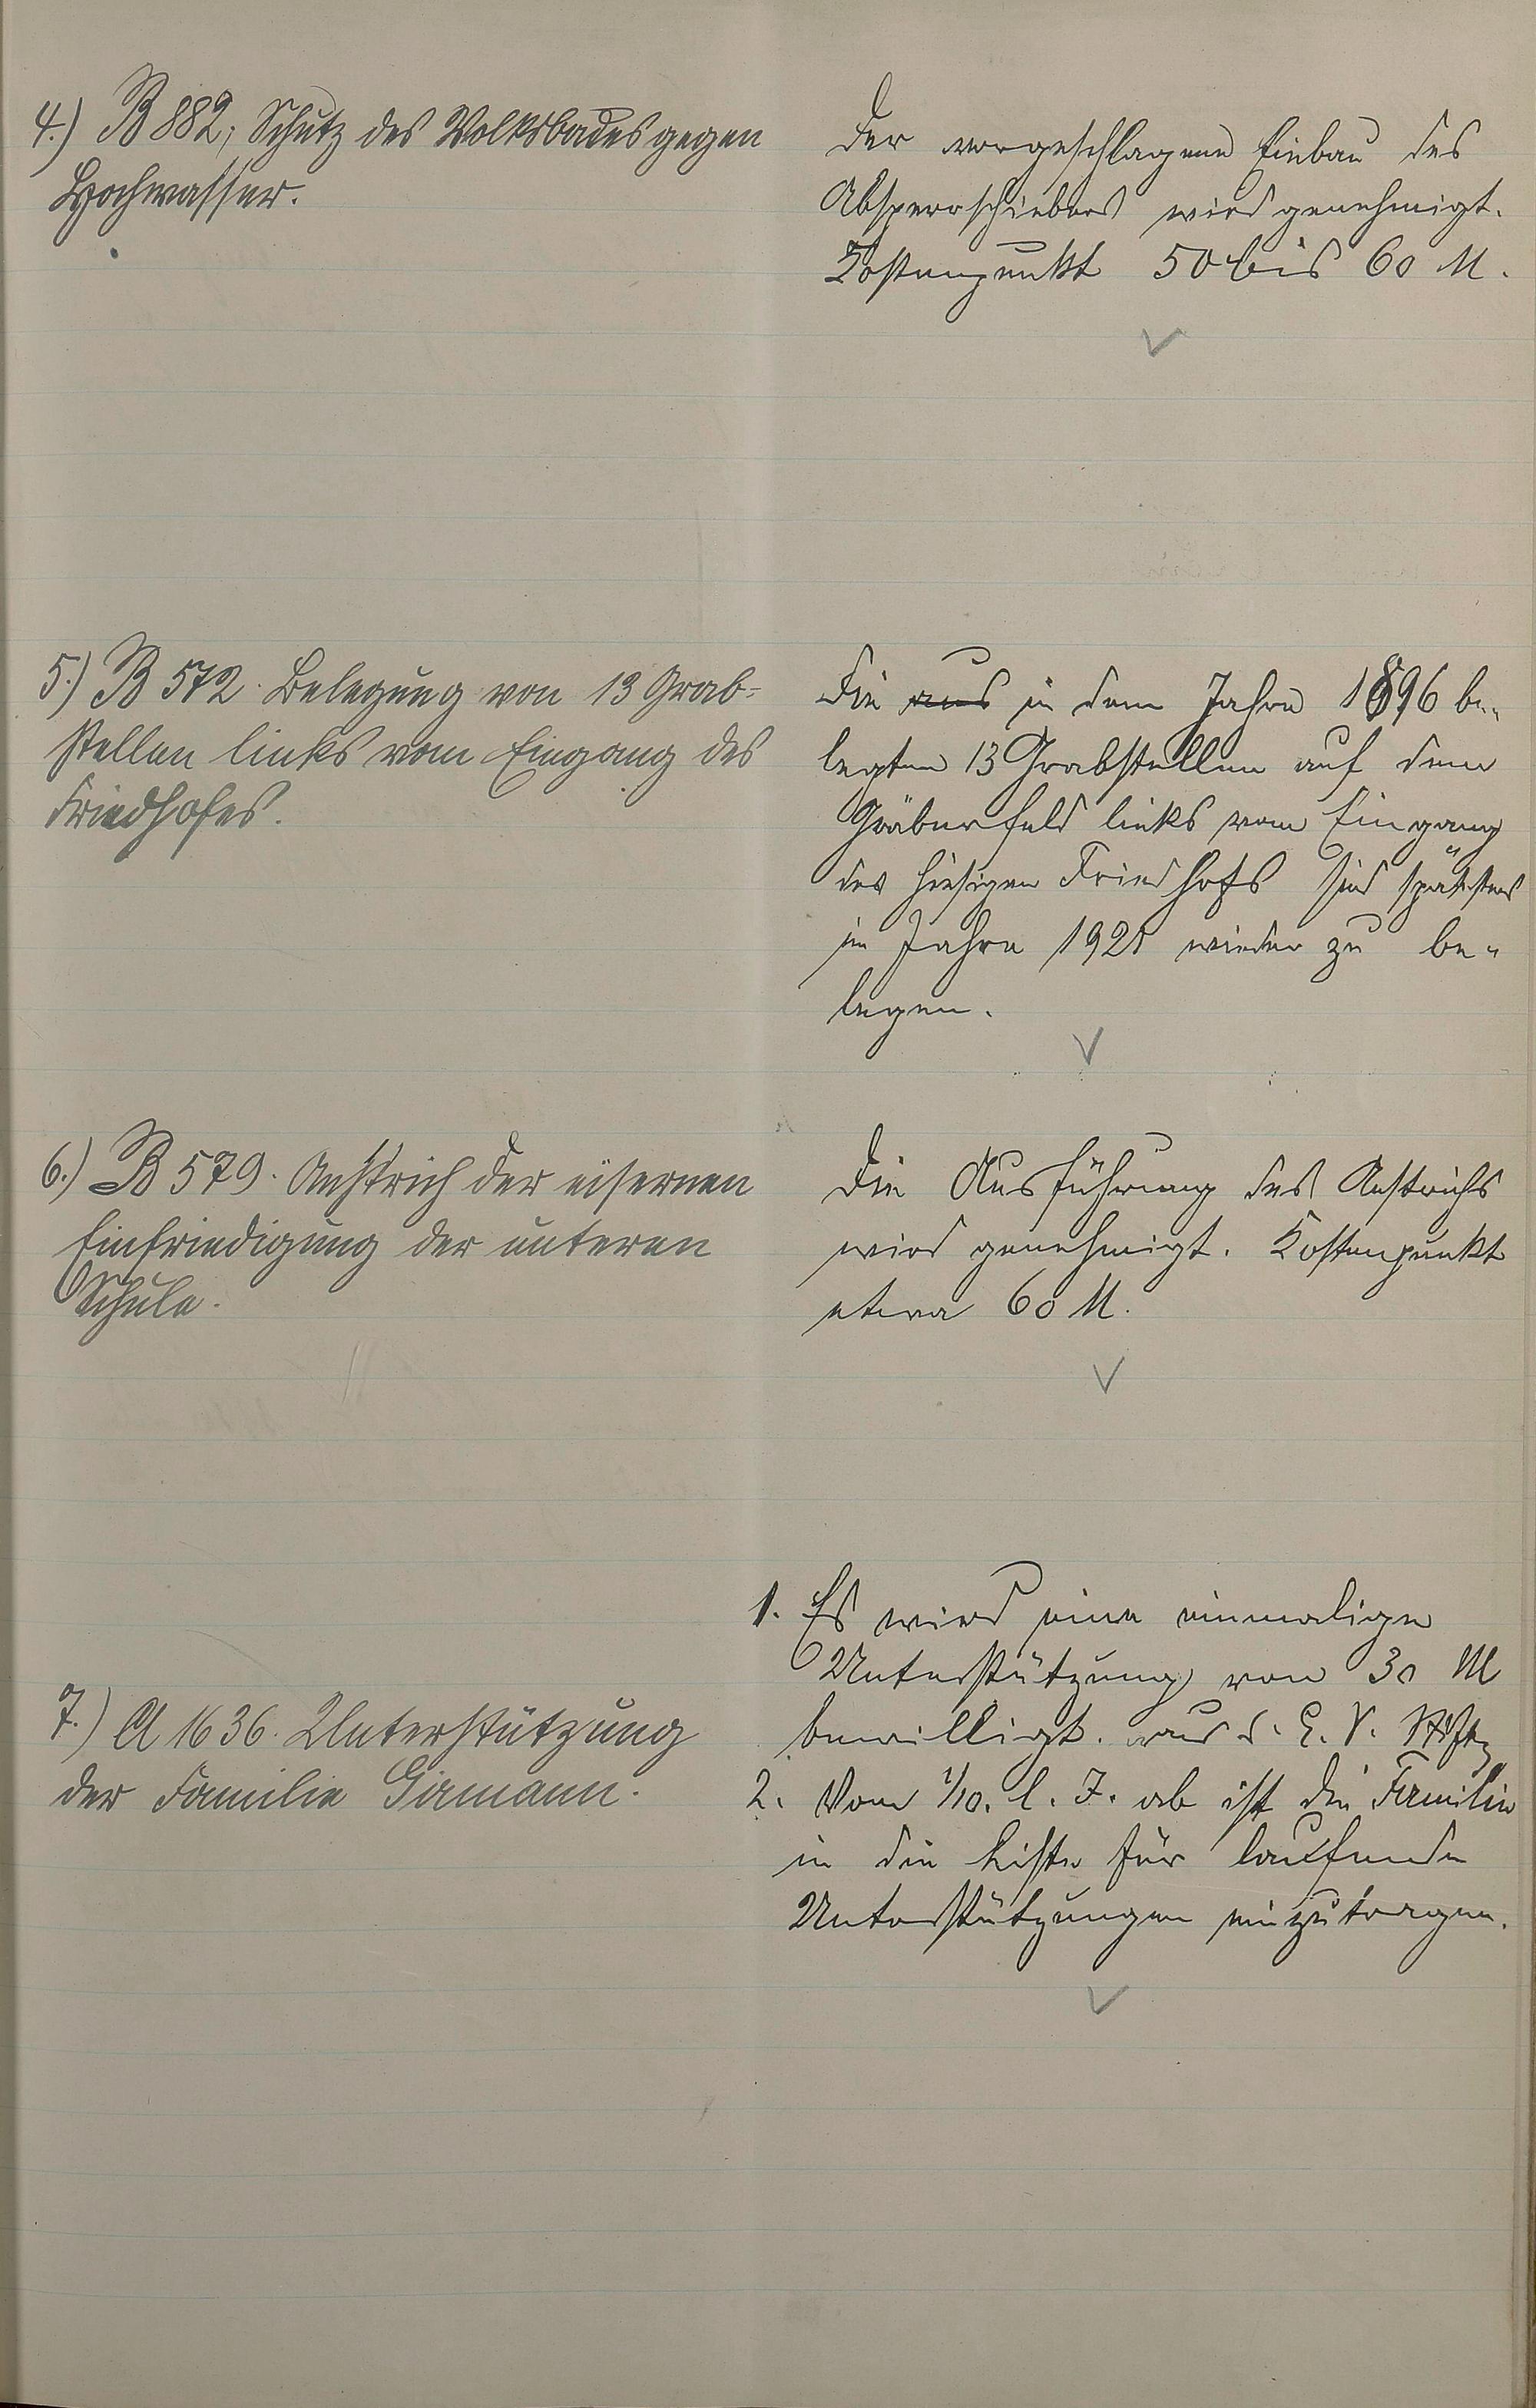 4.) B 882; Schutz des Volksbades gegen
Hochwasser.
Der vorgeschlagene Einbau des
Absperrschiebers wird genehmigt.
Kostenpunkt 50 bis 60 M.
5.) B 572. Belegung von 13 Grab-
stellen links vom Eingang des
Friedhofes.
Die aus in dem Jahre 1896 be-
legten 13 Grabstellen auf dem
Gräberfeld links vom Eingang
des hiesigen Friedhofs sind spätestens
im Jahre 1925 wieder zu be-
legen.
6.) B 579. Anstrich der eisernen
Einfriedigung der unteren
Schule.
Die Ausführung des Anstrichs
wird genehmigt. Kostenpunkt
etwa 60 M.
7.) A 1636. Unterstützung
der Familie
1. Es wird eine einmalige
Unterstützung von 30 M
bewilligt. aus d. E. V. Stiftg
2. Vom 1/10. l. J. ab ist die Familie
in die Liste für laufende
Unterstützungen einzutragen.